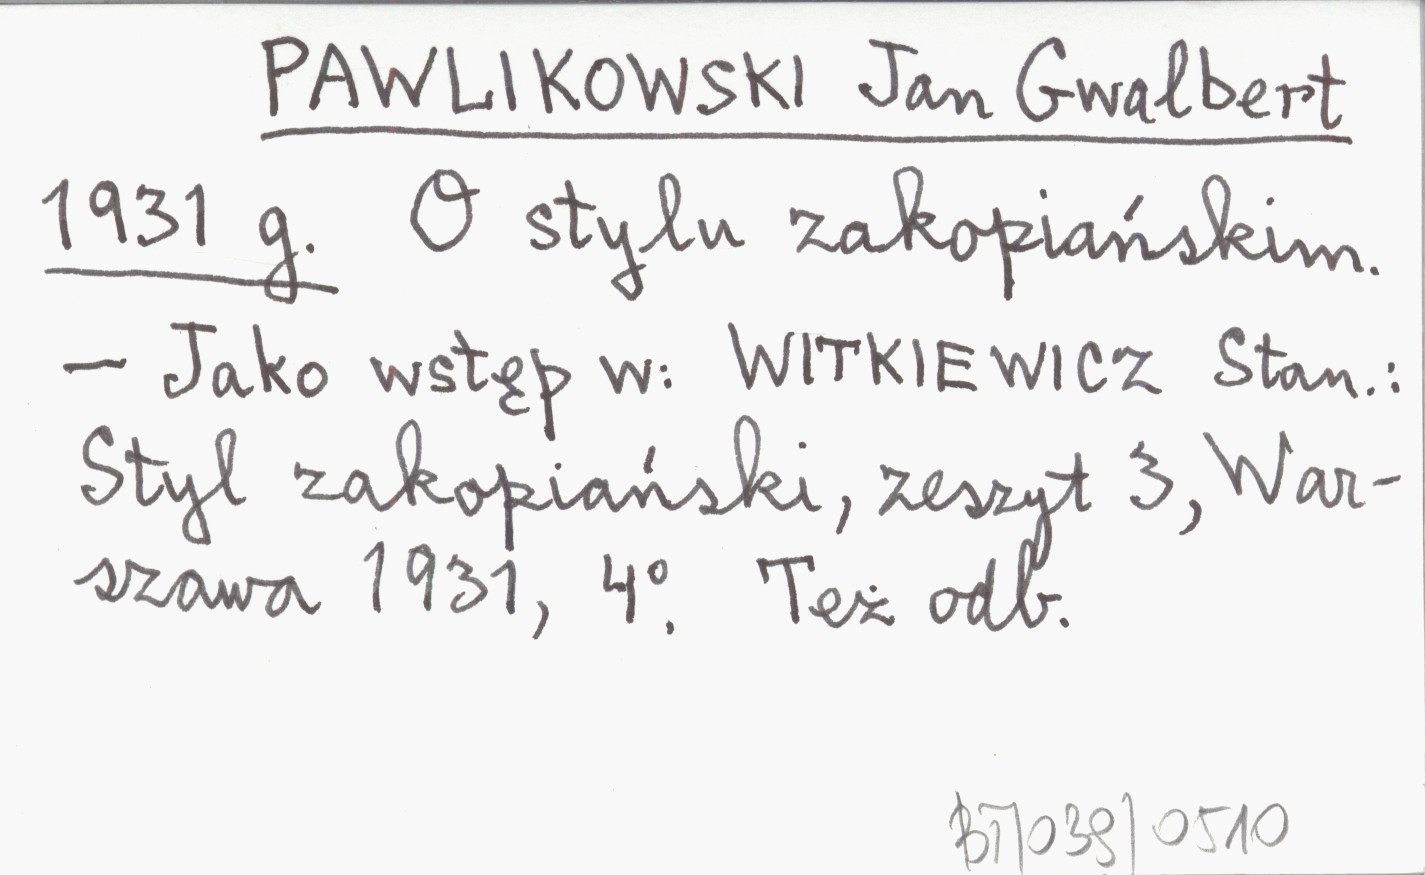 PAWLIKOWSKI Jan Gwalbert
1931 g. O stylu zakopiańskim.
— Jako wstęp w: WITKIEWICZ Stan.:
Styl zakopiański, zeszyt 3, War-
szawa 1931, 4º. Też odb.
BT/039/0510